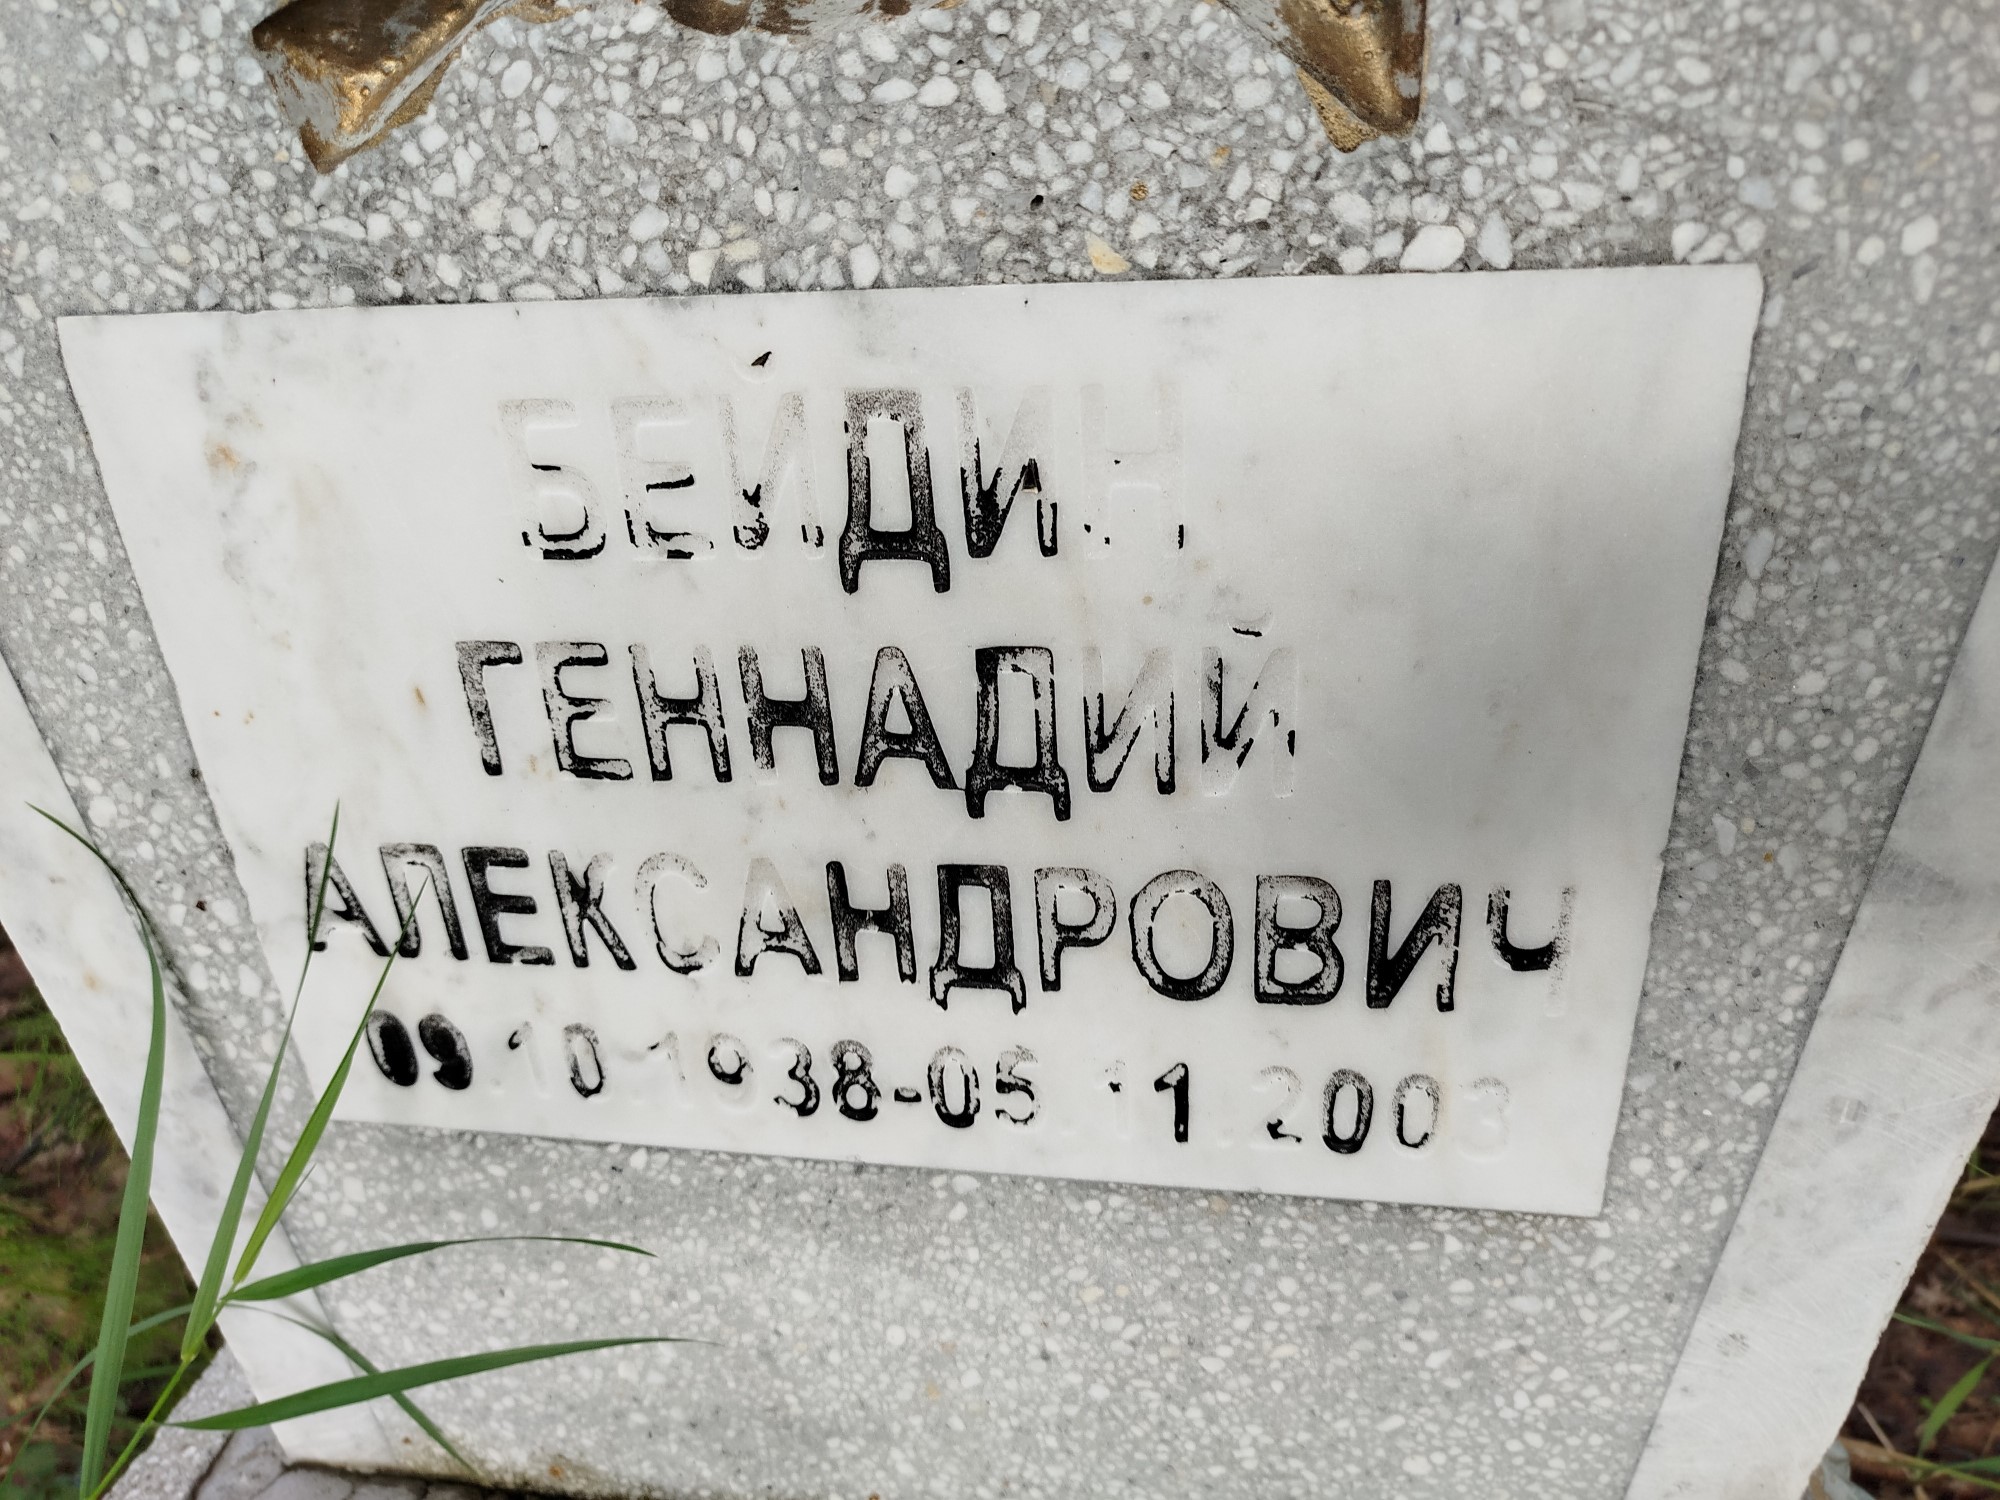 БЕЙДИН
ГЕННАДИЙ
АЛЕКСАНДРОВИЧ
09.10.1938-05.11.2003